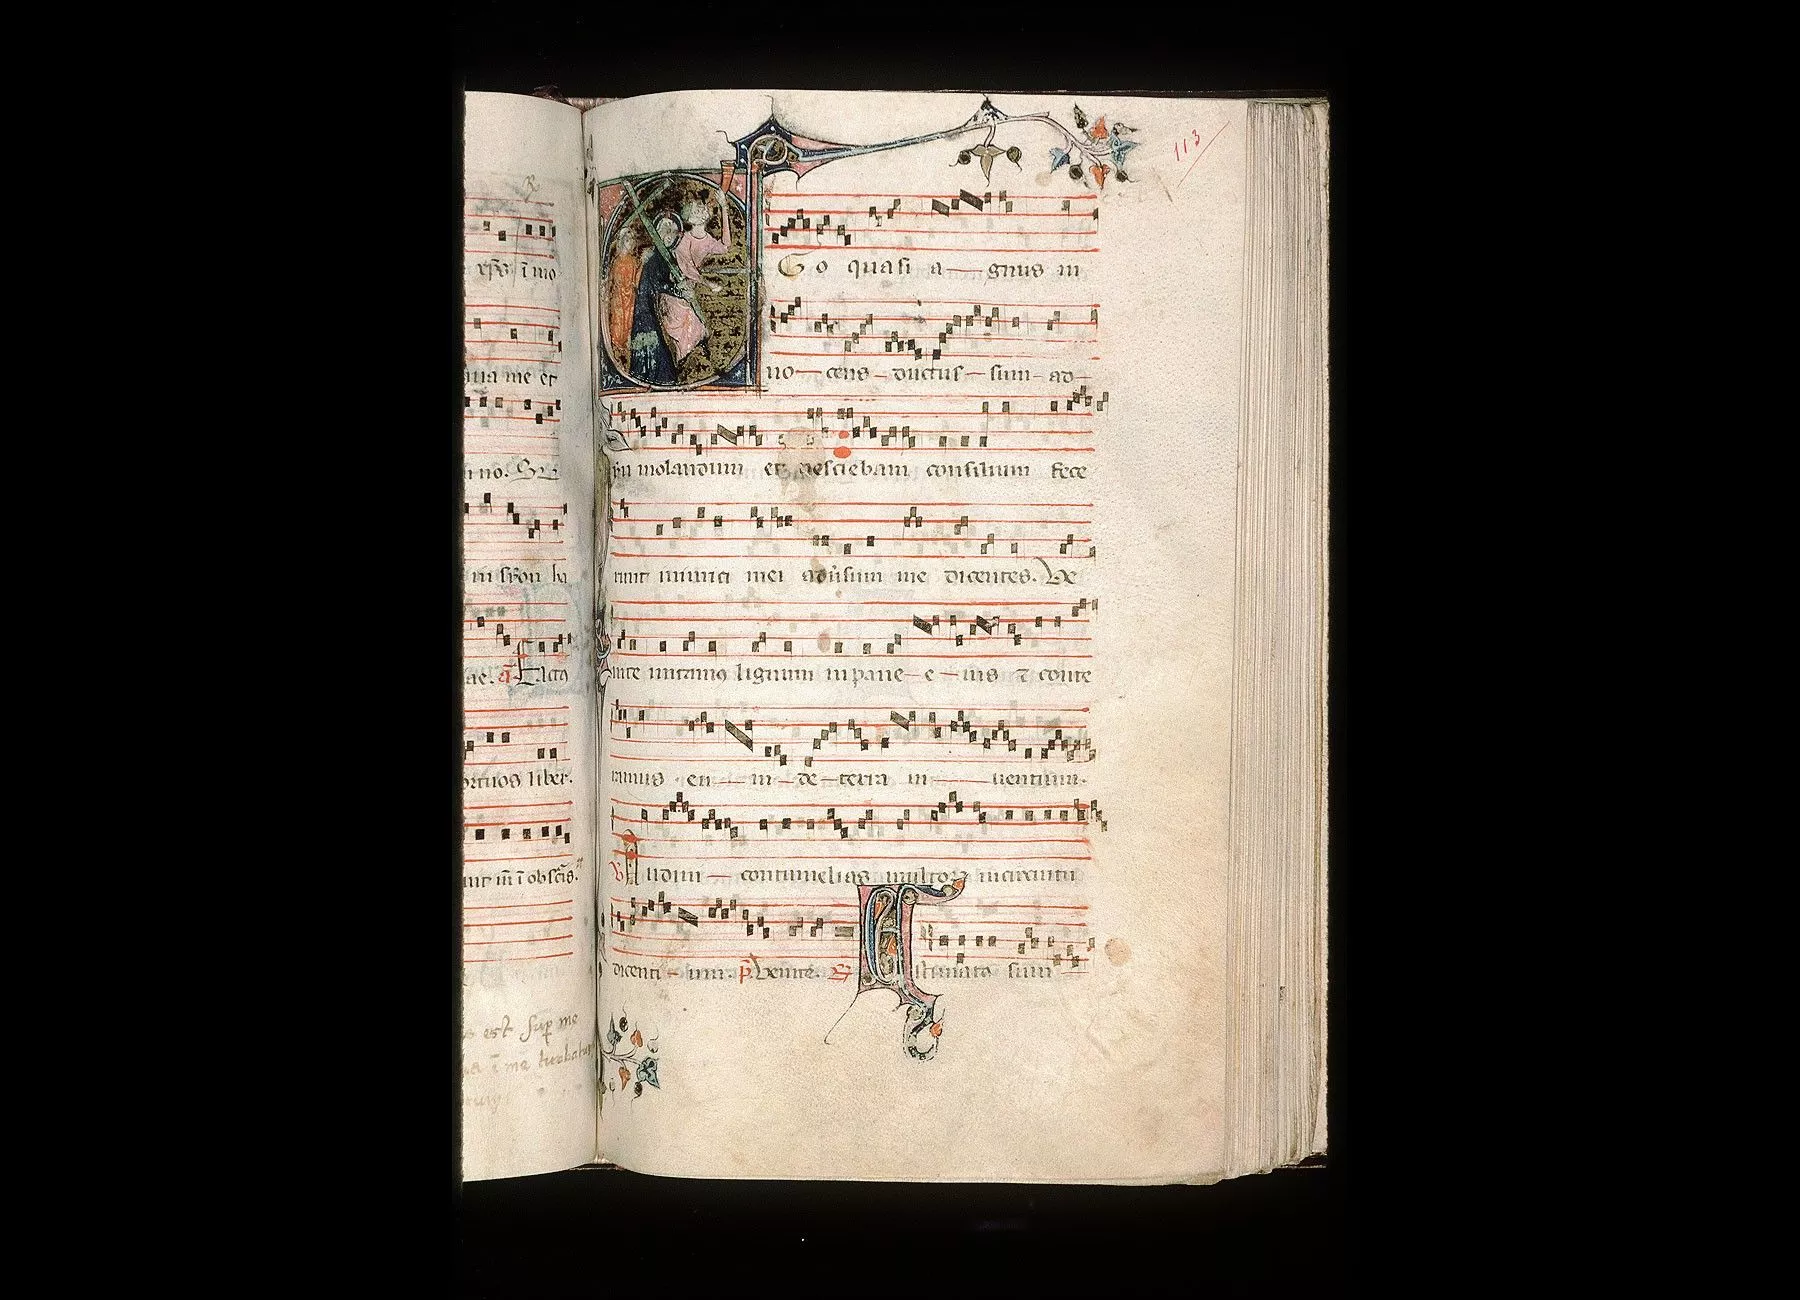 xp̄s ī mo
ma me et
no. 
in sp̄on ba
ae. a᷑ Factus
ortuos liber.
unt m̄ ī obscēs.
s est sup me
a ī me turbatu
113
Go quasi a — gnus in
no — cens — ductus — sum — ad —
molandum et nesciebam consilium fece
runt inimici mei adu̓sum me dicentes. Ve
nite mitamus lignum in pane — e — ius ⁊ conte
ramus eu — m — de — terra in — uentium.
℣ Audiui — contumelias multoꝝ in circuitu
dicenti — um. p̄. Venite. Estimatus sum —